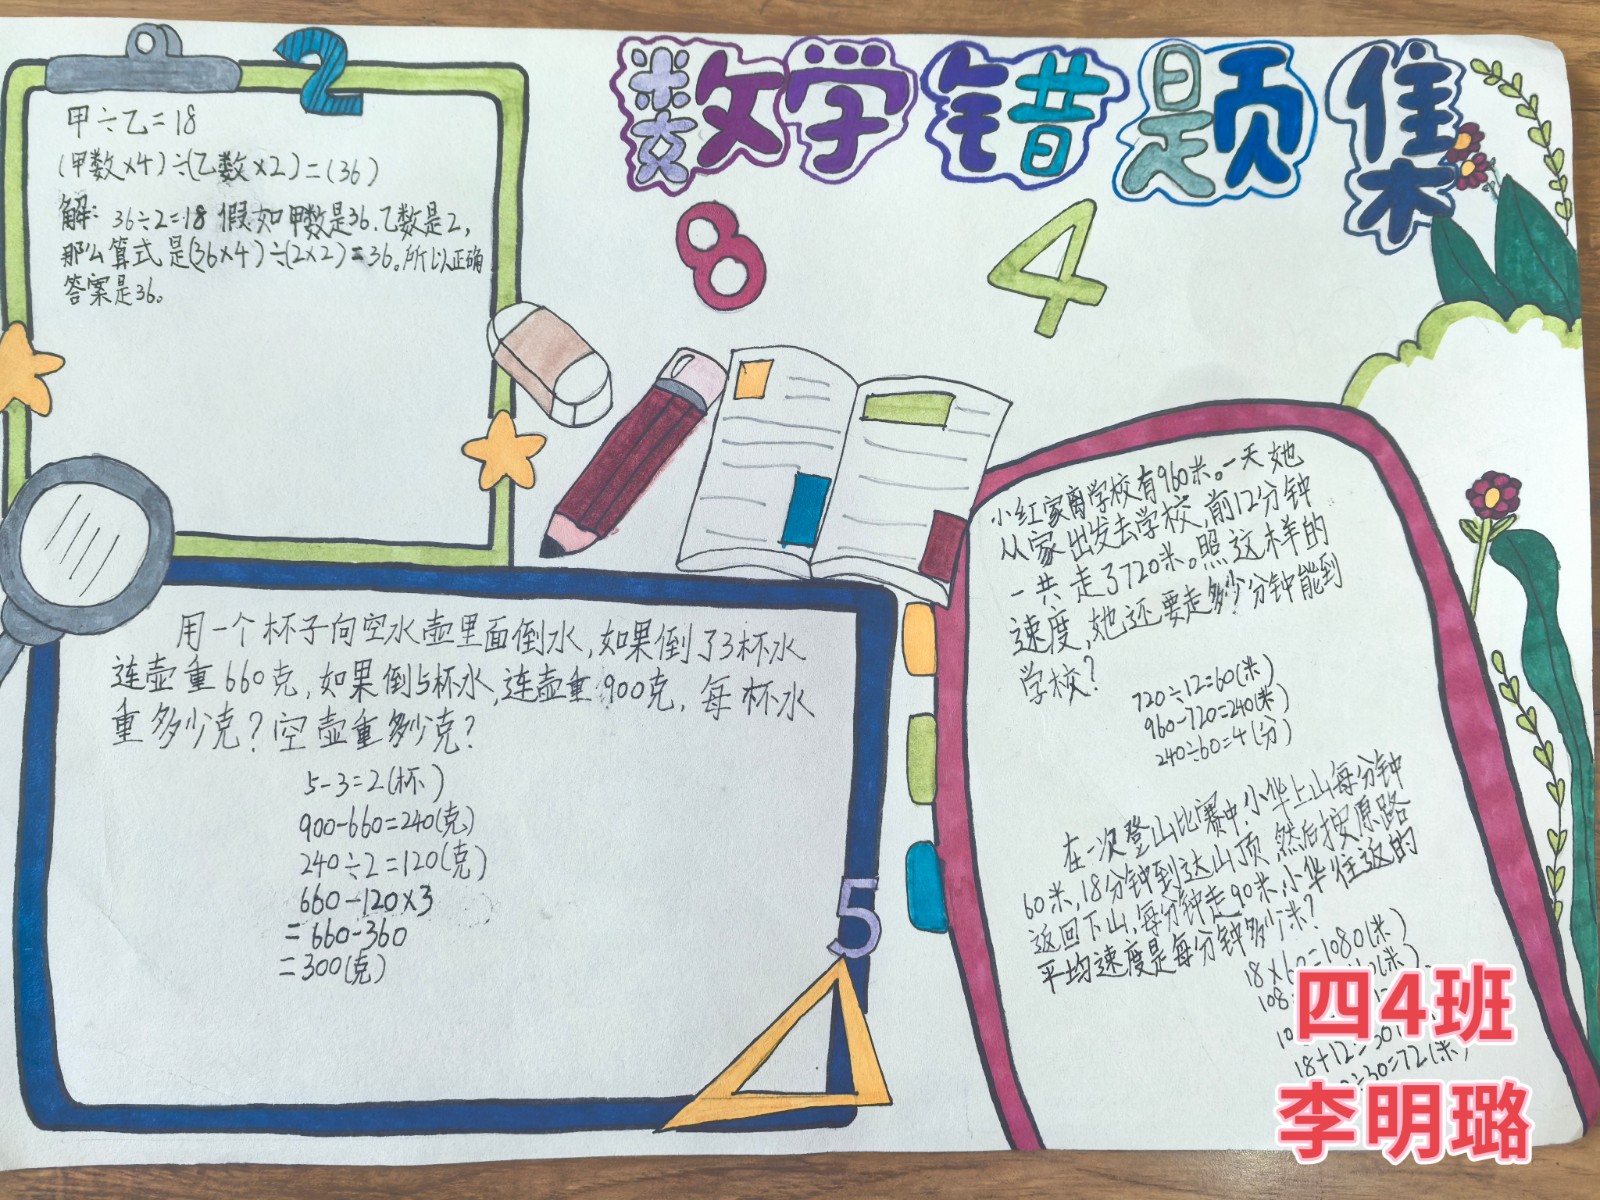 数学错题集
2
8
4
甲÷乙=18
(甲数×4)÷(乙数×2)=(36)
解: 36÷2=18 假如甲数是36.乙数是2,
那么算式是(36×4)÷(2×2)=36。所以正确
答案是36。
用一个杯子向空水壶里面倒水,如果倒了3杯水
连壶重660克,如果倒5杯水,连壶重900克,每杯水
重多少克?空壶重多少克?
5-3=2(杯)
900-660=240(克)
240÷2=120(克)
660-120×3
=660-360
=300(克)
5
小红家离学校有960米。一天她
从家出发去学校,前12分钟
一共走了720米。照这样的
速度,她还要走多少分钟能到
学校?
720÷12=60(米)
960-720=240(米)
240÷60=4(分)
在一次登山比赛中,小华上山每分钟
60米,18分钟到达山顶 然后按原路
返回下山,每分钟走90米,小华往返的
平均速度是每分钟多少米?
18×60=1080(米)
108
10
18+12=30
÷30=72(米)
四4班
李明璐